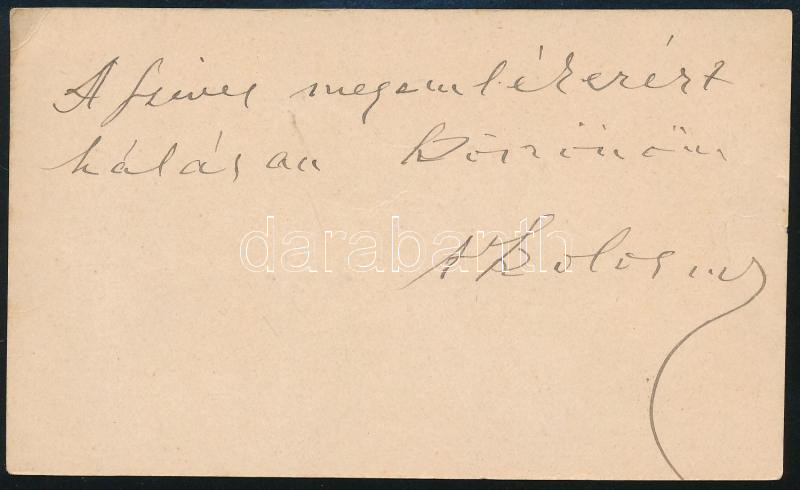 A szives megemlékezésért
hálásan köszönöm
darabanth